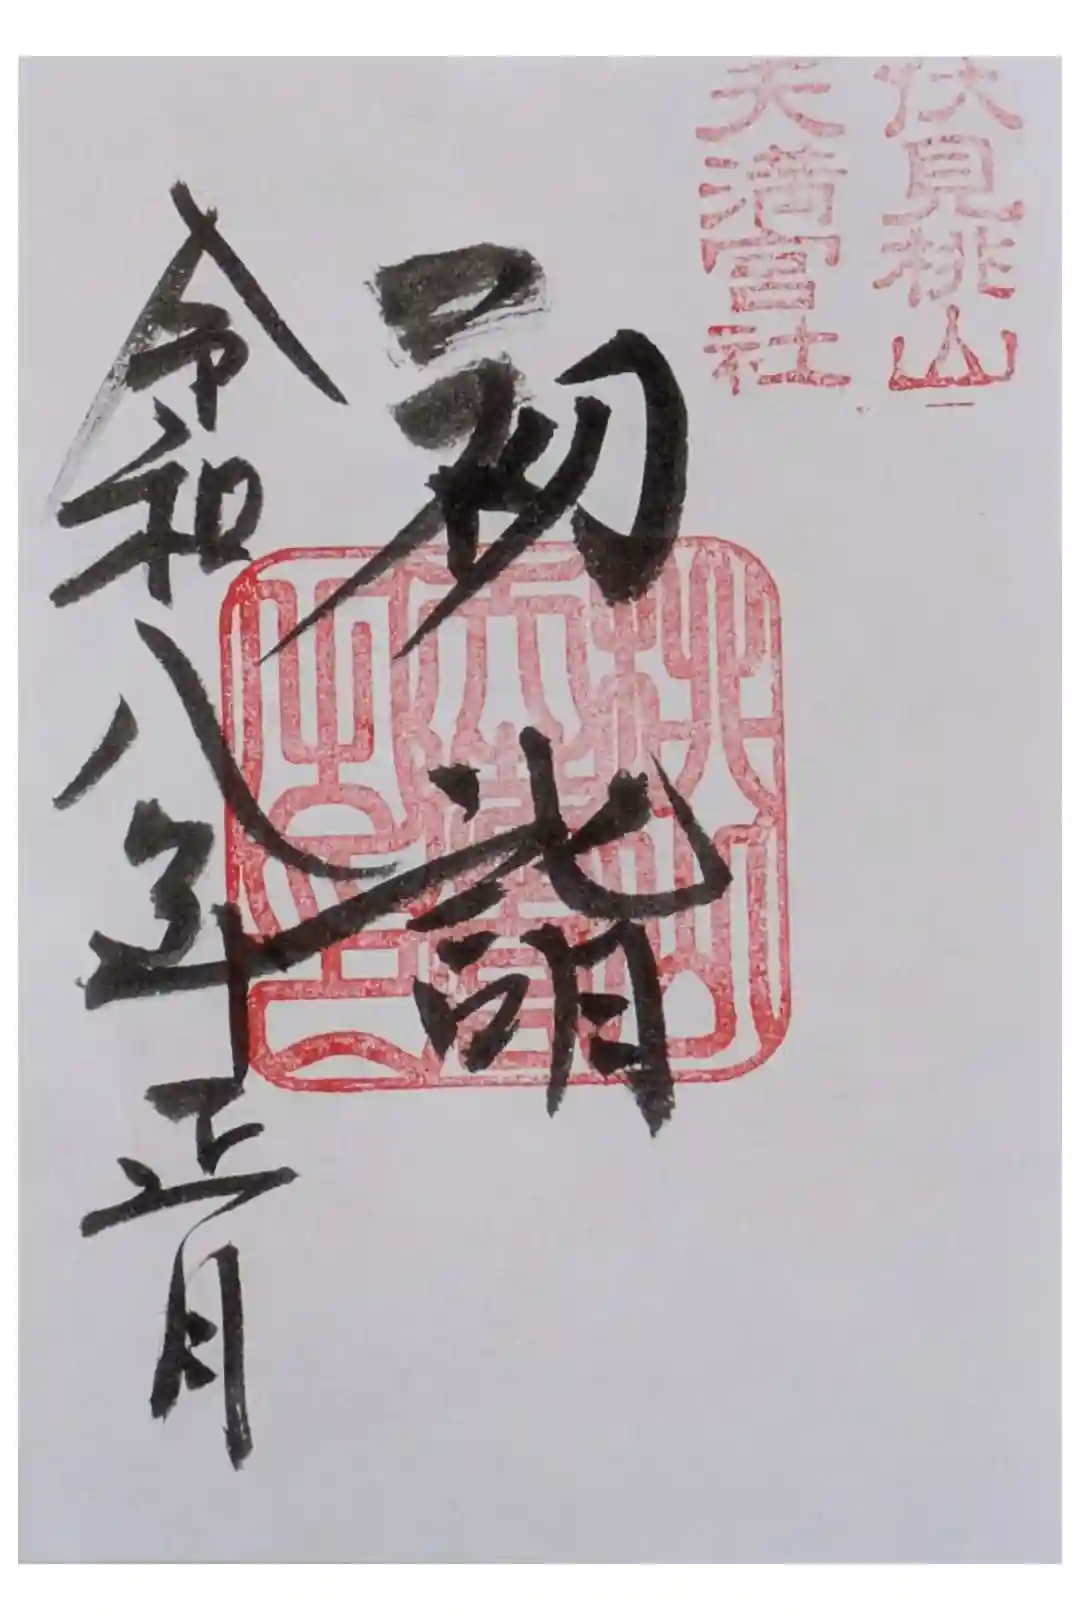 伏見桃山
天満宮社
初詣
桃山
天満宮
令和八年正月